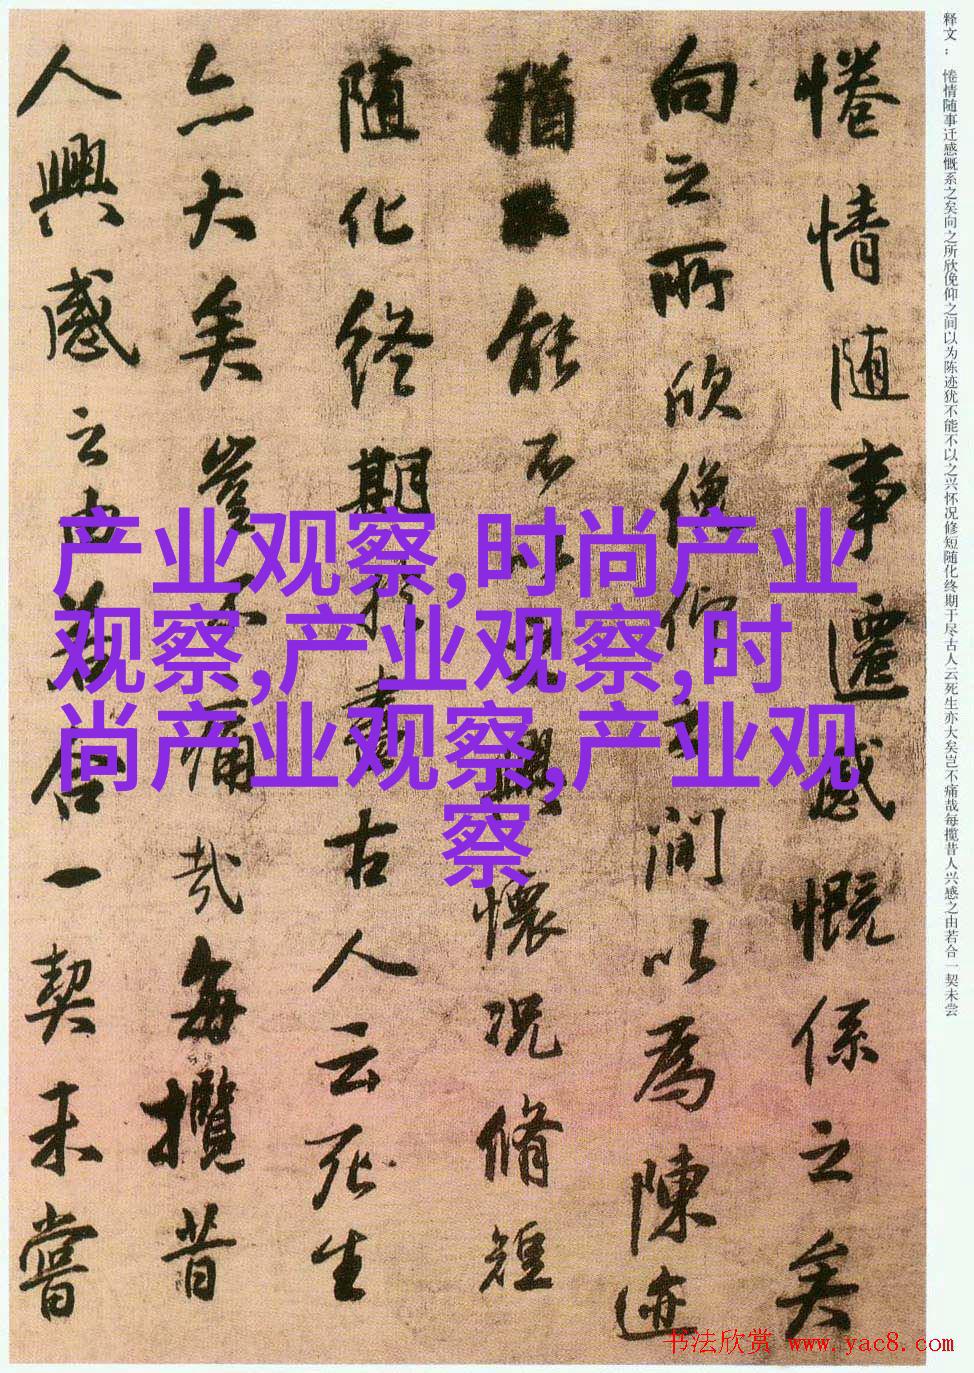 释文：惓情随事迁感慨系之矣向之所欣俛仰之间以为陈迹犹不能不以之兴怀况修短随化终期于尽古人云死生亦大矣岂不痛哉每揽昔人兴感之由若合一契未尝
惓情随事遷感慨係之矣
向之所欣俛仰之間以為陳迹
猶不能不以之興懷況脩短
随化終期於盡古人云死生
亦大矣豈不痛哉每攬昔
人興感之由若合一契未嘗
产业观察,时尚产业
观察,产业观察,时
尚产业观察,产业观
察
书法欣赏 www.yac8.com